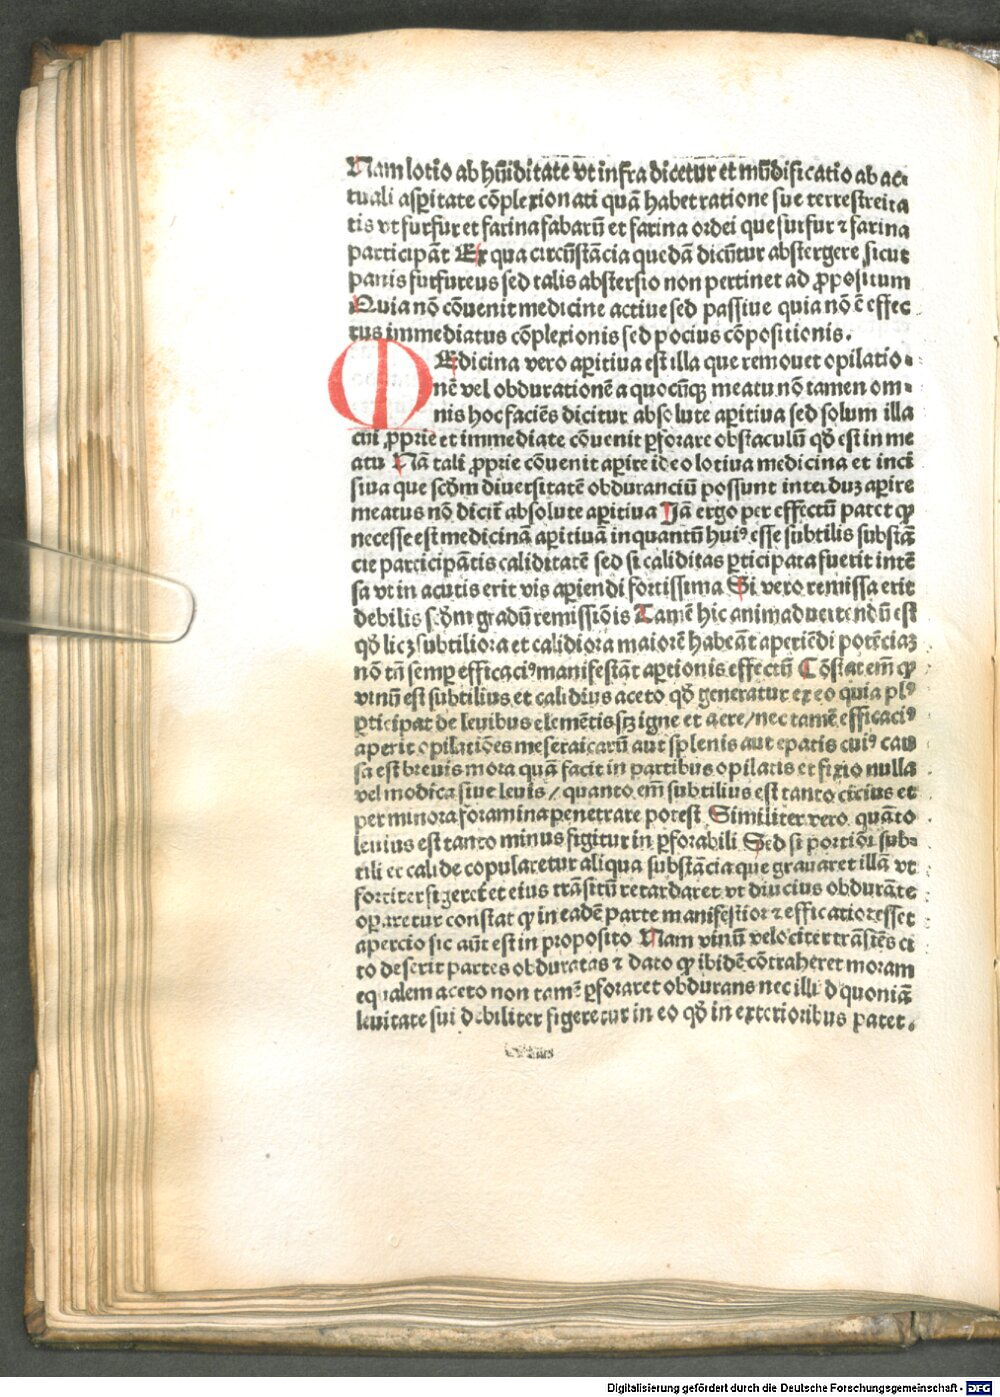 Nam lotio ab hũiditate vt infra dicetur et mũdificatio ab ac⸗
tuali asꝑitate cõplexionati quã habet ratione sue terrestreita
tis vt furfur et farina fabarũ et farina ordei que furfur ⁊ farina
participãt Ex qua circũstãcia quedã dicũtur abstergere sicut
panis furfureus sed talis abstersio non pertinet ad ꝓpositum
Quia nõ cõuenit medicine actiue sed passiue quia nõ ẽ effec
tus immediatus cõplexionis sed pocius cõpositionis.
MEdicina vero aꝑitiua est illa que remouet opilatio⸗
nẽ vel obdurationẽ a quocũqꝫ meatu nõ tamen om⸗
nis hoc faciẽs dicitur absolute aꝑitiua sed solum illa
cui ꝓprie et immediate cõuenit ꝑforare obstaculũ qð est in me
atu Nã tali ꝓprie cõuenit aꝑire ideo lotiua medicina et inci
siua que scðm diuersitatẽ obduranciũ possunt interduꝫ aꝑire
meatus nõ dicit̃ absolute aꝑitiua Jã ergo per effectũ patet ꝙ
necesse est medicinã aꝑitiuã inquantũ huiꝰ esse subtilis substã
cie participãtis caliditatẽ sed si caliditas ꝑticipata fuerit intẽ
sa vt in acutis erit vis aꝑiendi fortissima Si vero remissa erit
debilis scðm gradũ remissiõis Tamẽ hic animaduertendũ est
qð licꝫ subtiliora et calidiora maiorẽ habeãt aperiẽdi potẽciaꝫ
nõ tñ semꝑ efficaciꝰ manifestãt aꝑtionis effectũ Cõstat em̃ ꝙ
vinũ est subtilius et calidius aceto qð generatur ex eo quia plꝰ
ꝑticipat de leuibus elemẽtis scꝫ igne et aere/ nec tamẽ efficaciꝰ
aperit opilatiões meseraicarũ aut splenis aut epatis cuiꝰ cau
sa est breuis mora quã facit in partibus opilatis et fixio nulla
vel modica siue leuis/ quanto em̃ subtilius est tanto citius et
per minora foramina penetrare potest Similiter vero quãto
leuius est tanto minus figitur in ꝑforabili Sed si portiõi sub⸗
tili et calide copularetur aliqua substãcia que grauaret illã vt
fortiter figeret et eius trãsitũ retardaret vt diucius obdurãte
oꝑaretur constat ꝙ in eadẽ parte manifestior ⁊ efficatior esset
apercio sic aũt est in proposito Nam vinũ velociter trãsiẽs ci
to deserit partes obduratas ⁊ dato ꝙ ibidẽ cõtraheret moram
equalem aceto non tamẽ ꝑforaret obdurans nec illud quoniã
leuitate sui debiliter figeretur in eo qð in exterioribus patet.
Digitalisierung gefördert durch die Deutsche Forschungsgemeinschaft - DFG